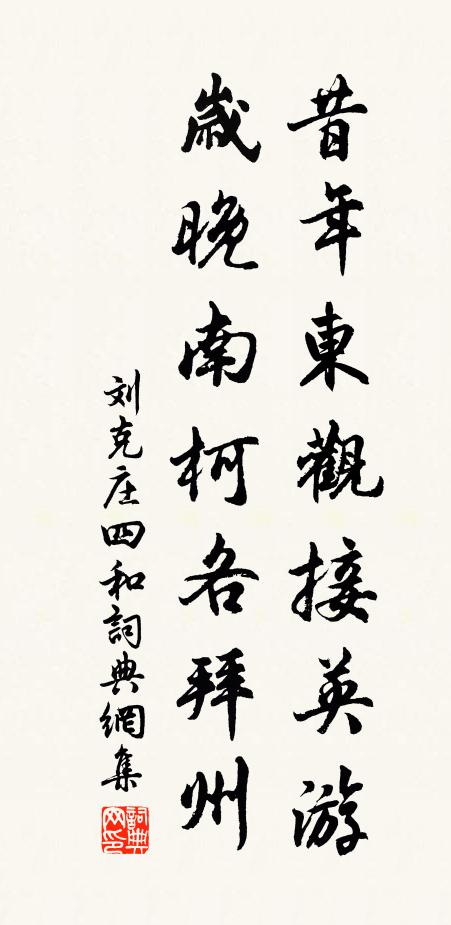 昔年東觀接英游
歲晚南柯各拜州
刘克庄四和詞典網集
詞典网印